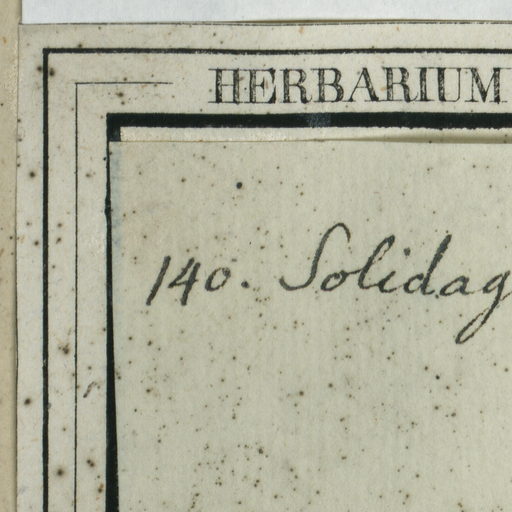 HERBARIUM
140. Solidag